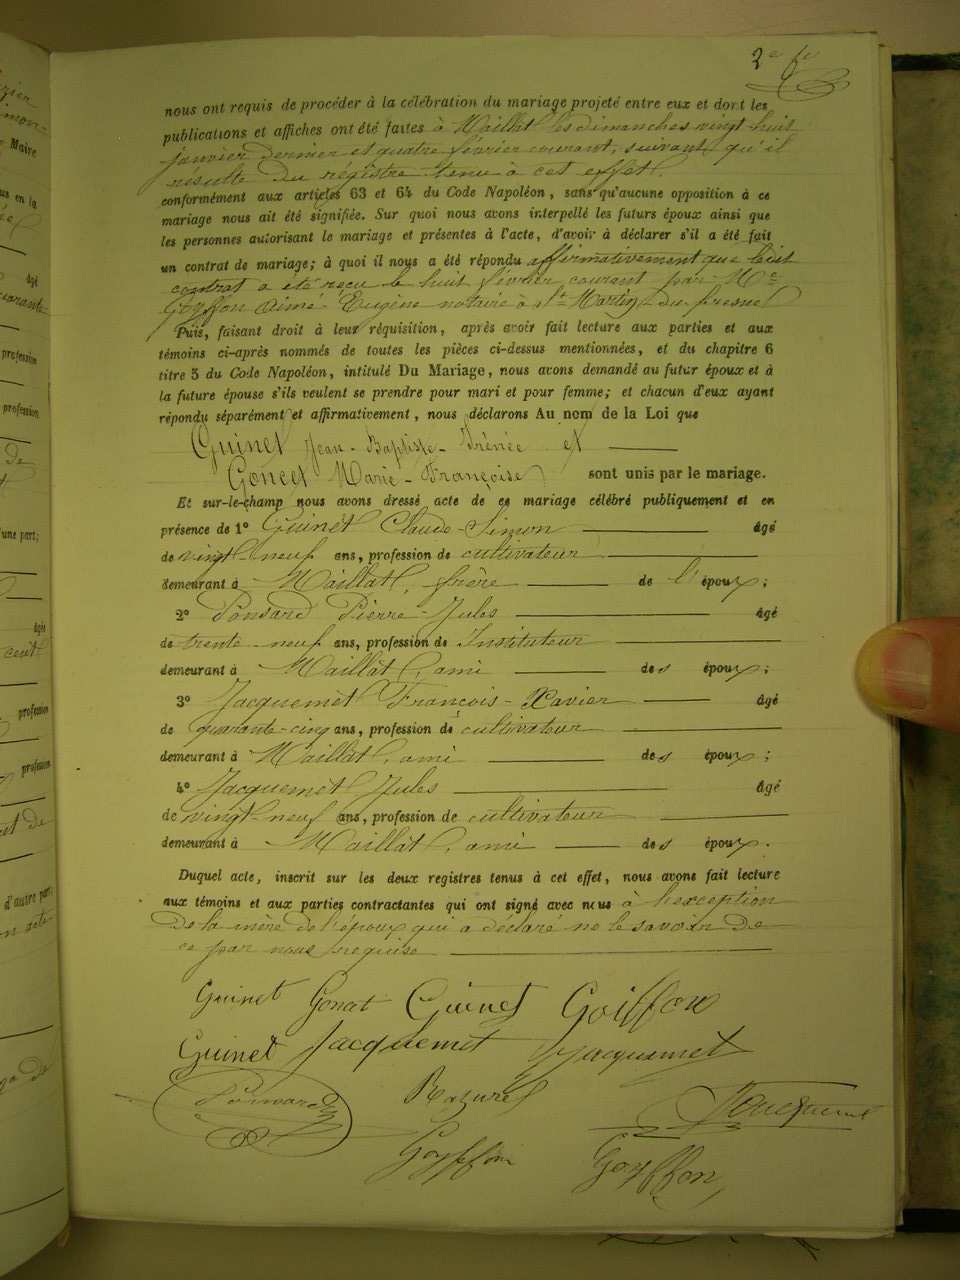 2e f
nous ont requis de procéder à la célébration du mariage projeté entre eux et dont les
publications et affiches ont été faites à Maillat les dimanches vingt huit
janvier dernier et quatre février courant, suivant qu'il
résulte du régistre tenu à cet effet.
conformément aux articles 63 et 64 du Code Napoléon, sans qu'aucune opposition à ce
mariage nous ait été signifiée. Sur quoi nous avons interpellé les futurs époux ainsi que
les personnes autorisant le mariage et présentes à l'acte, d'avoir à déclarer s'il a été fait
un contrat de mariage; à quoi il nous a été répondu affirmativement que ledit
contrat a été reçu le huit février courant par Me
Goyffon Aimé Eugène notaire à St Martin du fresne
Puis, faisant droit à leur réquisition, après avoir fait lecture aux parties et aux
témoins ci-après nommés de toutes les pièces ci-dessus mentionnées, et du chapitre 6
titre 5 du Code Napoléon, intitulé Du Mariage, nous avons demandé au futur époux et à
la future épouse s'ils veulent se prendre pour mari et pour femme; et chacun d'eux ayant
répondu séparément et affirmativement, nous déclarons Au nom de la Loi que
Guinet Jean-Baptiste-Irénée et
Goncet Marie-Françoise sont unis par le mariage.
Et sur-le-champ nous avons dressé acte de ce mariage célébré publiquement et en
présence de 1° Guinet Claude-Simon âgé
de vingt-neuf ans, profession de cultivateur
demeurant à Maillat, frère de l'époux;
2° Ponsard Pierre-Jules âgé
de trente-neuf ans, profession de Instituteur
demeurant à Maillat, ami des époux;
3° Jacquemet François-Xavier âgé
de quarante-cinq ans, profession de cultivateur
demeurant à Maillat, ami des époux;
4° Jacquemet Jules âgé
de vingt-neuf ans, profession de cultivateur
demeurant à Maillat, ami des époux.
Duquel acte, inscrit sur les deux registres tenus à cet effet, nous avons fait lecture
aux témoins et aux parties contractantes qui ont signé avec nous à l'exception
de la mère de l'époux qui a déclaré ne le savoir de
ce par nous requise
Guinet Gonat Guinet Goiffon
Guinet Jacquemet Jacquemet
Ponsard Razurel Jacquemet
Goyffon Goyffon